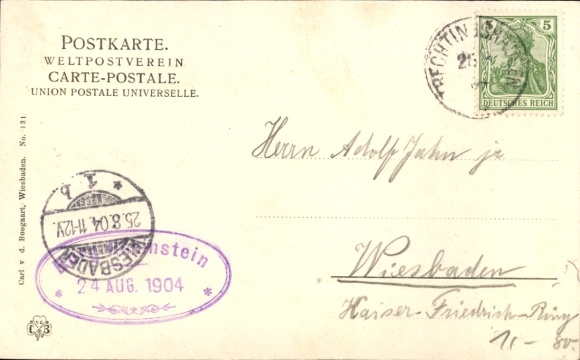 POSTKARTE.
WELTPOSTVEREIN
CARTE-POSTALE.
UNION POSTALE UNIVERSELLE.
5
DEUTSCHES REICH
Herrn Adolf Jahn jr
Wiesbaden
Kaiser-Friedrich-Ring
80.
Carl v. d. Boogaart, Wiesbaden. No. 131
* 1. b
25.8.04.11-12V.
WIESBADEN
nstein
* 24 AUG. 1904 *